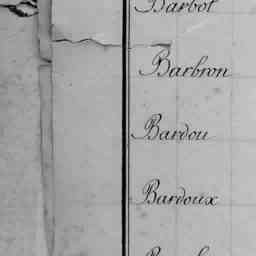 Barbot
Barbron
Bardou
Bardoux